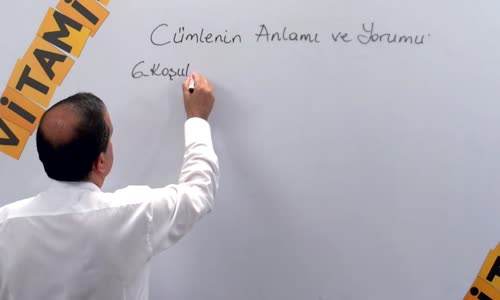 VİTAMİ
Cümlenin Anlamı ve Yorumu
6. Koşul
VİTA